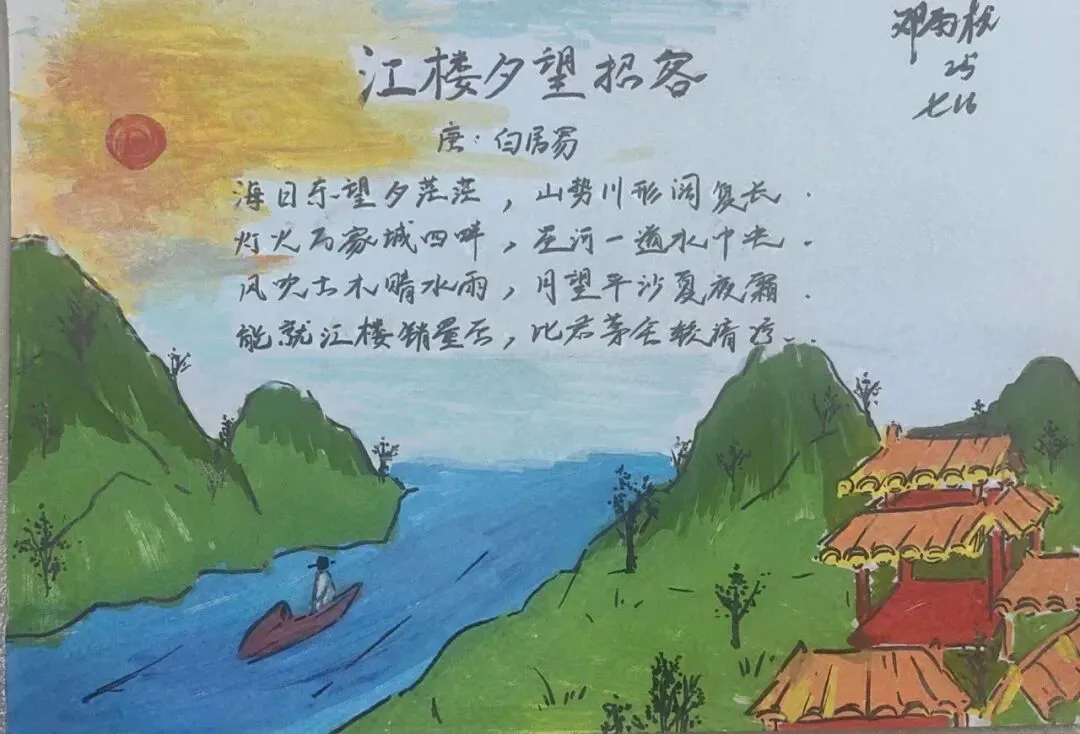 江楼夕望招客
唐：白居易
海日东望夕茫茫，山势川形阔复长．
灯火万家城四畔，星河一道水中央．
风吹古木晴水雨，月望平沙夏夜霜．
能就江楼销暑否，比君茅舍较清．
邓雨
25
七16